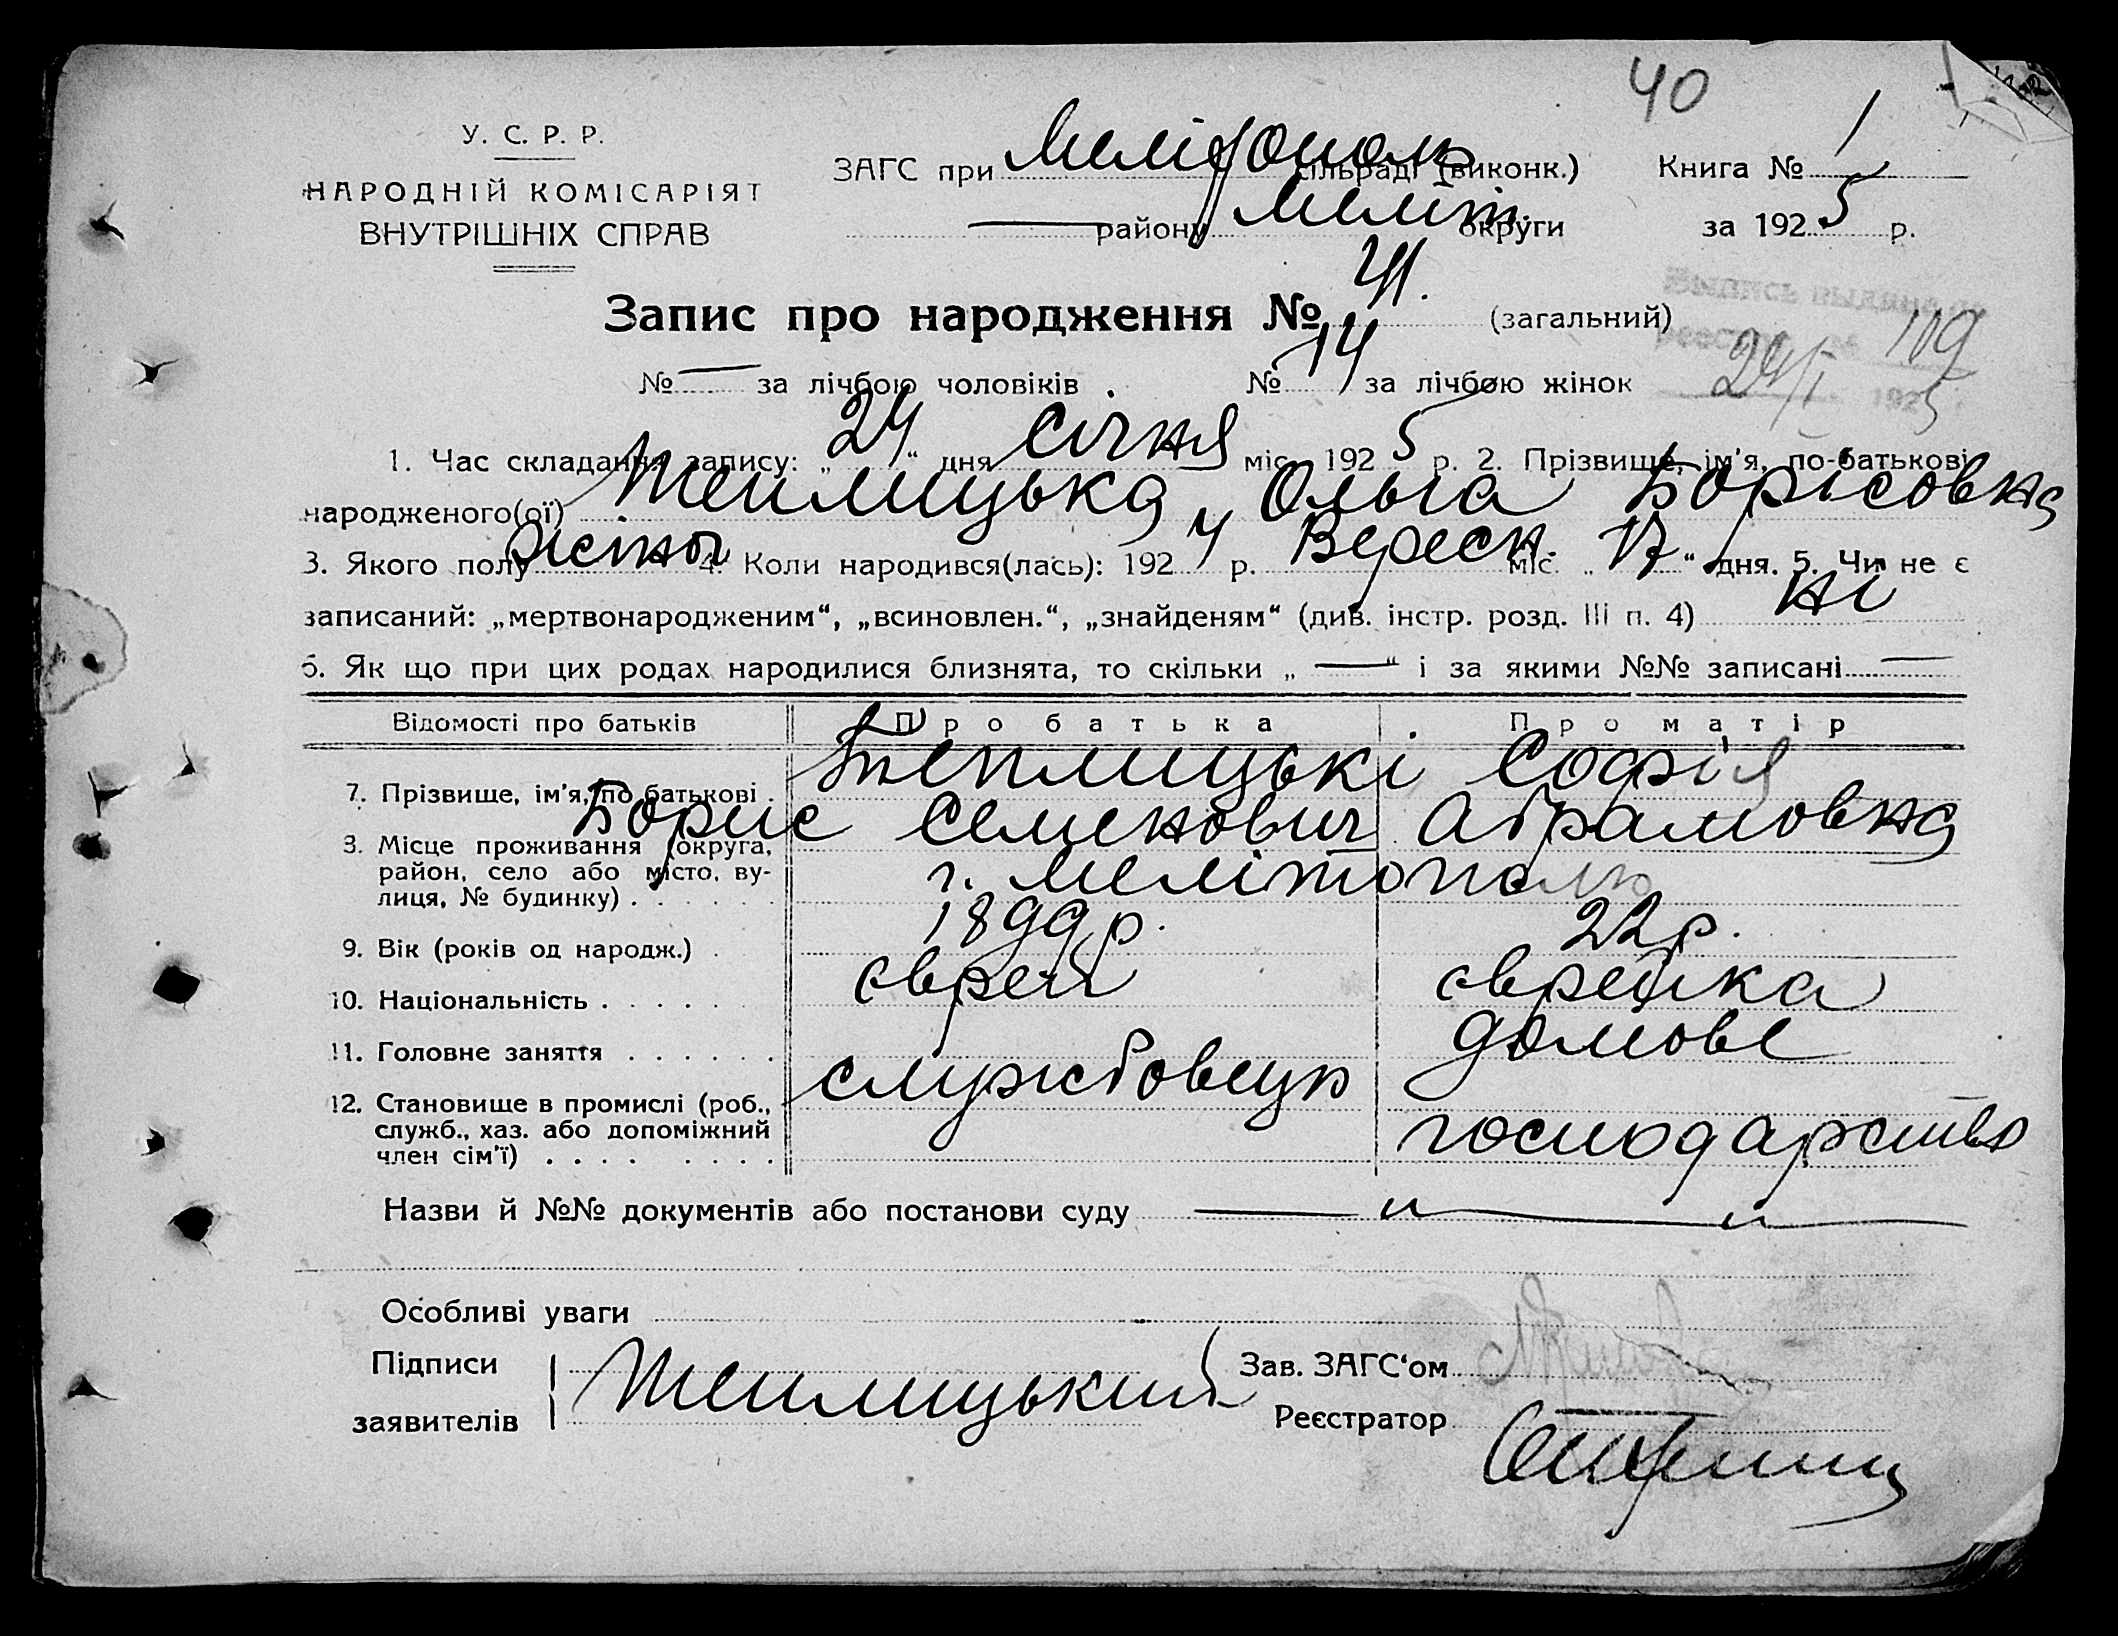 40
У. С. Р. Р.
НАРОДНІЙ КОМІСАРІЯТ
ВНУТРІШНІХ СПРАВ
ЗАГС при Мелітополь сільраді (виконк.)
— району Меліт. округи
Книга № 1
за 1925 р.
Запис про народження № 41. (загальний)
№ — за лічбою чоловіків . № 14 за лічбою жінок
Выпись выдана
109
24/I 1925
1. Час складання запису: „24“ дня Січня міс. 1925 р. 2. Прізвище, ім'я, по-батькові
народженого(ої) Теплицька Ольга Борісовна
3. Якого полу жіноч 4. Коли народився(лась): 1924 р. Вересн. міс. „17“ дня. 5. Чи не є
записаний: „мертвонародженим“, „всиновлен.“, „знайденям“ (див. інстр. розд. III п. 4) ні
6. Як що при цих родах народилися близнята, то скільки „ — “ і за якими №№ записані —
Відомості про батьків Про батька Про матір
7. Прізвище, ім'я, по батькові . Теплицькі Софія
Борис Семенович Абрамовна
8. Місце проживання (округа,
район, село або місто, ву-
лиця, № будинку) . . . . . . г. Мелітополь
9. Вік (років од народж.) . 1899 р. 22 р.
10. Національність . . . . . єврей єврейка
11. Головне заняття . . . . . . службовець домове
12. Становище в промислі (роб.,
служб., хаз. або допоміжний
член сім'ї) . . . . . . . . господарство
Назви й №№ документів або постанови суду — „ — „ —
Особливі уваги
Підписи
заявителів Теплицький
Зав. ЗАГС'ом
Реєстратор